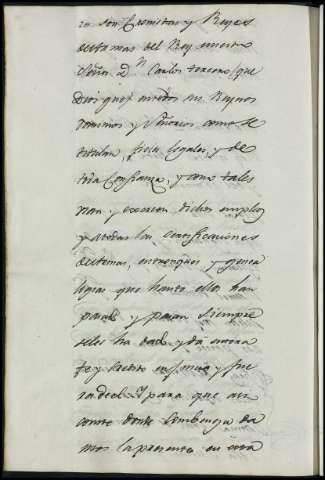 ro son Cronistas y Reyes
de armas del Rey nuestro
Señor Dn Carlos tercero (que
Dios gue) en todos sus Reynos
Dominios y Señorios como se
titulan, fieles legales, y de
toda Confianza, y como tales
usan, y exercen dichos empleos
y a todas las certificaciones
de Armas, entronques y genea
logias que hantes ellos han
pasado y pasan siempre
seles ha dado y dá entera
fe y credito en juicio y fue
ra de el Y para que asi
conste donde combenga da
mos la presente en esta